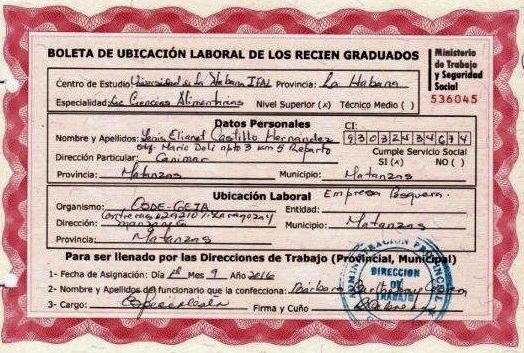 BOLETA DE UBICACIÓN LABORAL DE LOS RECIEN GRADUADOS
Ministerio
de Trabajo
y Seguridad
Social
536045
Centro de Estudio: Universidad de La Habana IFAL Provincia: La Habana
Especialidad: Lic Ciencias Alimentarias Nivel Superior (x) Técnico Medio ( )
Datos Personales
Nombre y Apellidos: Elianet Castillo Hernandez
CI:
93032434674
Edf. Mario Doli apto 3 km 5 Reparto
Dirección Particular: Canimar
Cumple Servicio Social
SI (x) NO ( )
Provincia: Matanzas Municipio: Matanzas
Ubicación Laboral
Empresa Pesquera
Organismo: CODE-GEIA Entidad:
Contreras
Dirección: Municipio: Matanzas
Provincia: Matanzas
Para ser llenado por las Direcciones de Trabajo (Provincial, Municipal)
1- Fecha de Asignación: Día Mes 9 Año 2016
2- Nombre y Apellidos del funcionario que la confecciona: Bárbara
3- Cargo: Especialista Firma y Cuño
ADMINISTRACION PROVINCIAL
DIRECCION
DE
TRABAJO